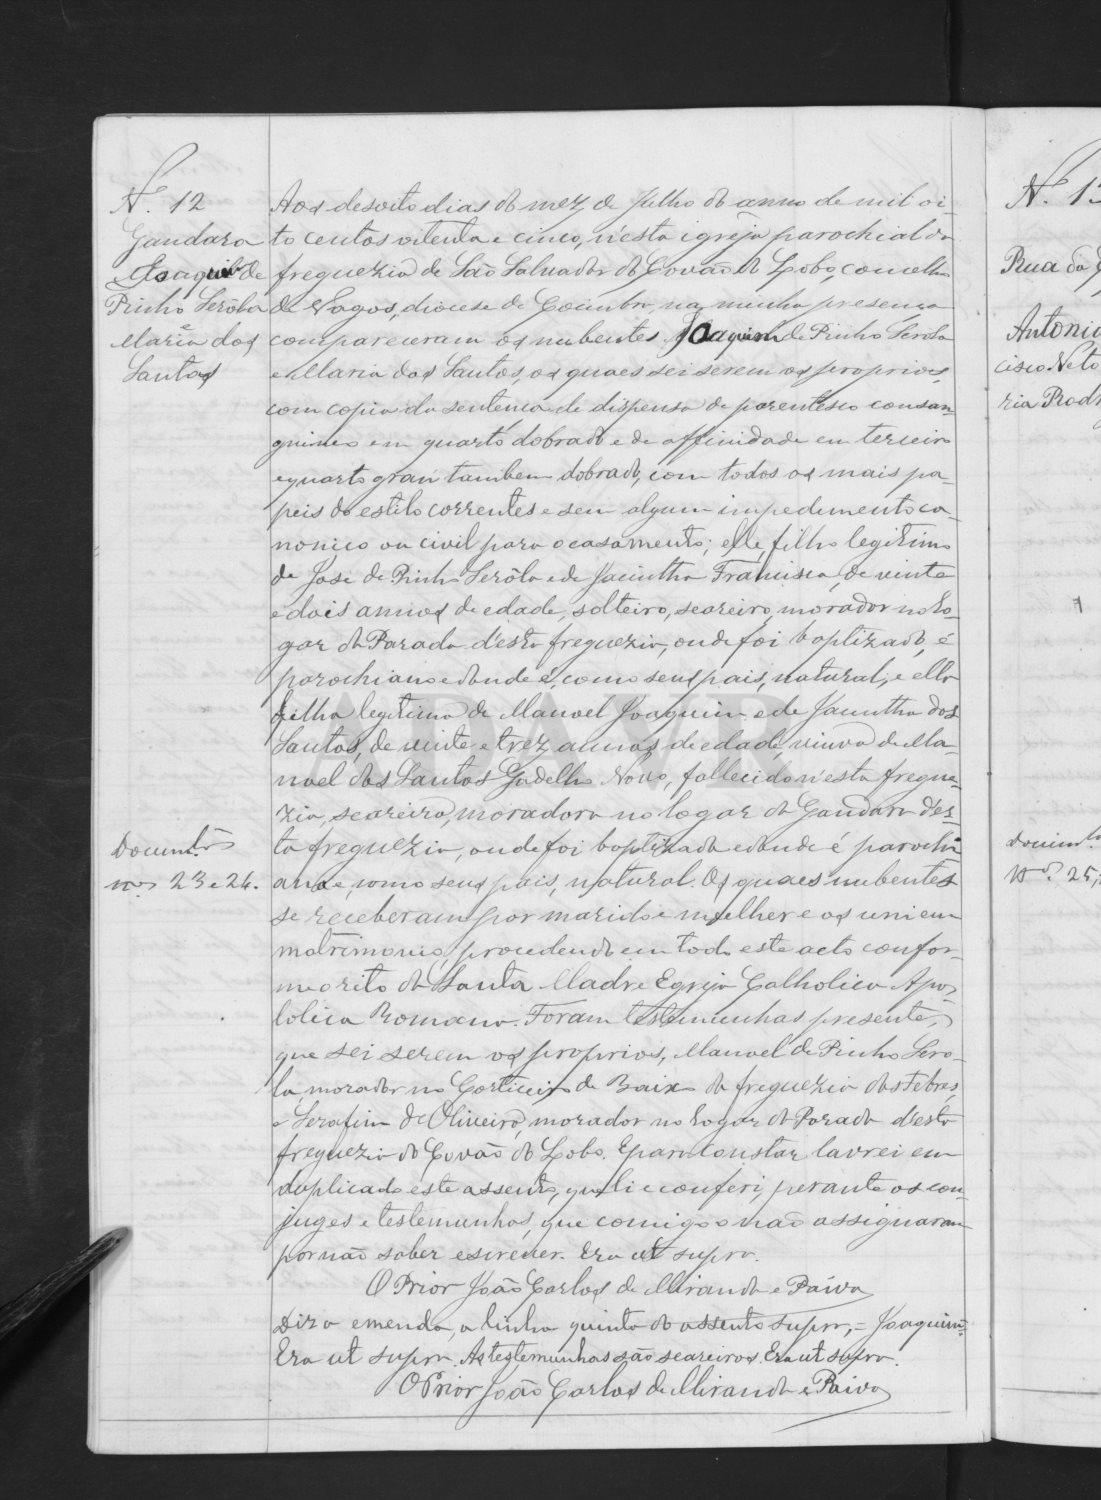 N.º 12
Gandara
Joaquim de
Pinho Serôla
e
Maria dos
Santos
Aos desoito dias do mez de Julho do anno de mil oi-
to centos oitenta e cinco, n'esta igreja parochial da
freguezia de São Salvador do Covão do Lobo, concelho
de Vagos, diocese de Coimbra, na minha presença
compareceram os nubentes Joaquim de Pinho Serola
e Maria dos Santos, os quaes sei serem os proprios,
com copia da sentença de dispensa de parentesco consan-
guineo em quarto dobrado e de affinidade em terceiro
e quarto grau tambem dobrado, com todos os mais pa-
peis do estilo correntes e sem algum impedimento ca-
nonico ou civil para o casamento; elle, filho legitimo
de José de Pinho Serôla e de Jacintha Francisca, de vinte
e dois annos de edade, solteiro, seareiro, morador no lo-
gar da Parada d'esta freguezia, onde foi baptizado, é
parochiano e donde é, como seus pais, natural; e ella
filha legitima de Manoel Joaquim e de Jacintha dos
Santos, de vinte e trez annos de edade, viuva de Ma-
noel dos Santos Gadelho Novo, fallecido n'esta fregue-
zia, seareira, moradora no logar da Gandara d'es-
ta freguezia, onde foi baptizada e donde é parochi-
ana e, como seus pais, natural. Os quaes nubentes
se receberam por marido e mulher e os uni em
matrimonio, procedendo em todo este acto confor-
me o rito da Santa Madre Egreja Catholica Apos-
tolica Romana. Foram testemunhas presentes,
que sei serem os proprios, Manoel de Pinho Sero-
la, morador no Corticeiro de Baixo da freguezia das Febres,
e Serafim de Oliveira, morador no logar da Parada d'esta
freguezia do Covão do Lobo. E para constar lavrei em
duplicado este assento, que li e conferi, perante os con-
juges e testemunhas, que comigo o não assignaram
por não saber escrever. Era ut supra.
O Prior João Carlos de Miranda e Paiva
Diz a emenda, a linha quinta do assento supra, = Joaquim =.
Era ut supra. As testemunhas são seareiros. Era ut supra.
O Prior João Carlos de Miranda e Paiva
Documtos
nos 23 e 24.
N.º 13
Rua da
Antonio
cisco Neto
ria Rodr
Documtos
Nos 25,
ADAVR